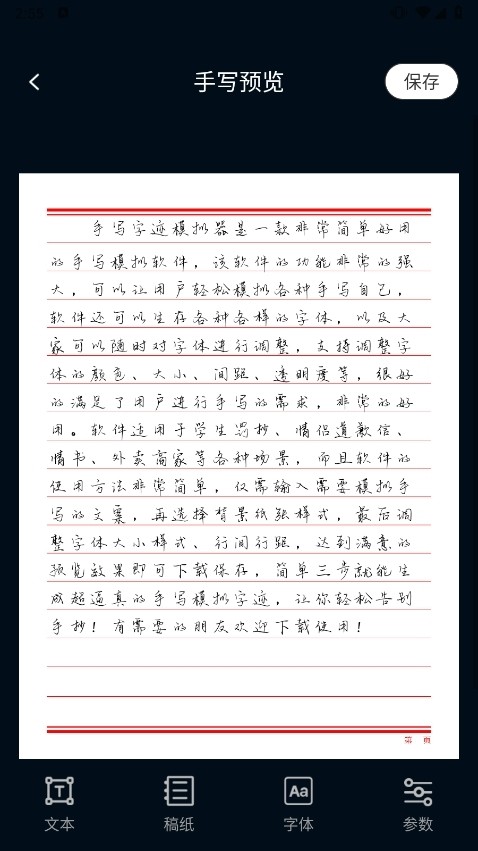 手写预览
保存
手写字迹模拟器是一款非常简单好用
的手写模拟软件，该软件的功能非常的强
大，可以让用户轻松模拟各种手写自己，
软件还可以生存各种各样的字体，以及大
家可以随时对字体进行调整，支持调整字
体的颜色、大小、间距、透明度等，很好
的满足了用户进行手写的需求，非常的好
用。软件适用于学生罚抄、情侣道歉信、
情书、外卖商家等各种场景，而且软件的
使用方法非常简单，仅需输入需要模拟手
写的文案，再选择背景纸张样式，最后调
整字体大小样式、行间行距，达到满意的
预览效果即可下载保存，简单三步就能生
成超逼真的手写模拟字迹，让你轻松告别
手抄！有需要的朋友欢迎下载使用！
第 页
文本
稿纸
Aa
字体
参数